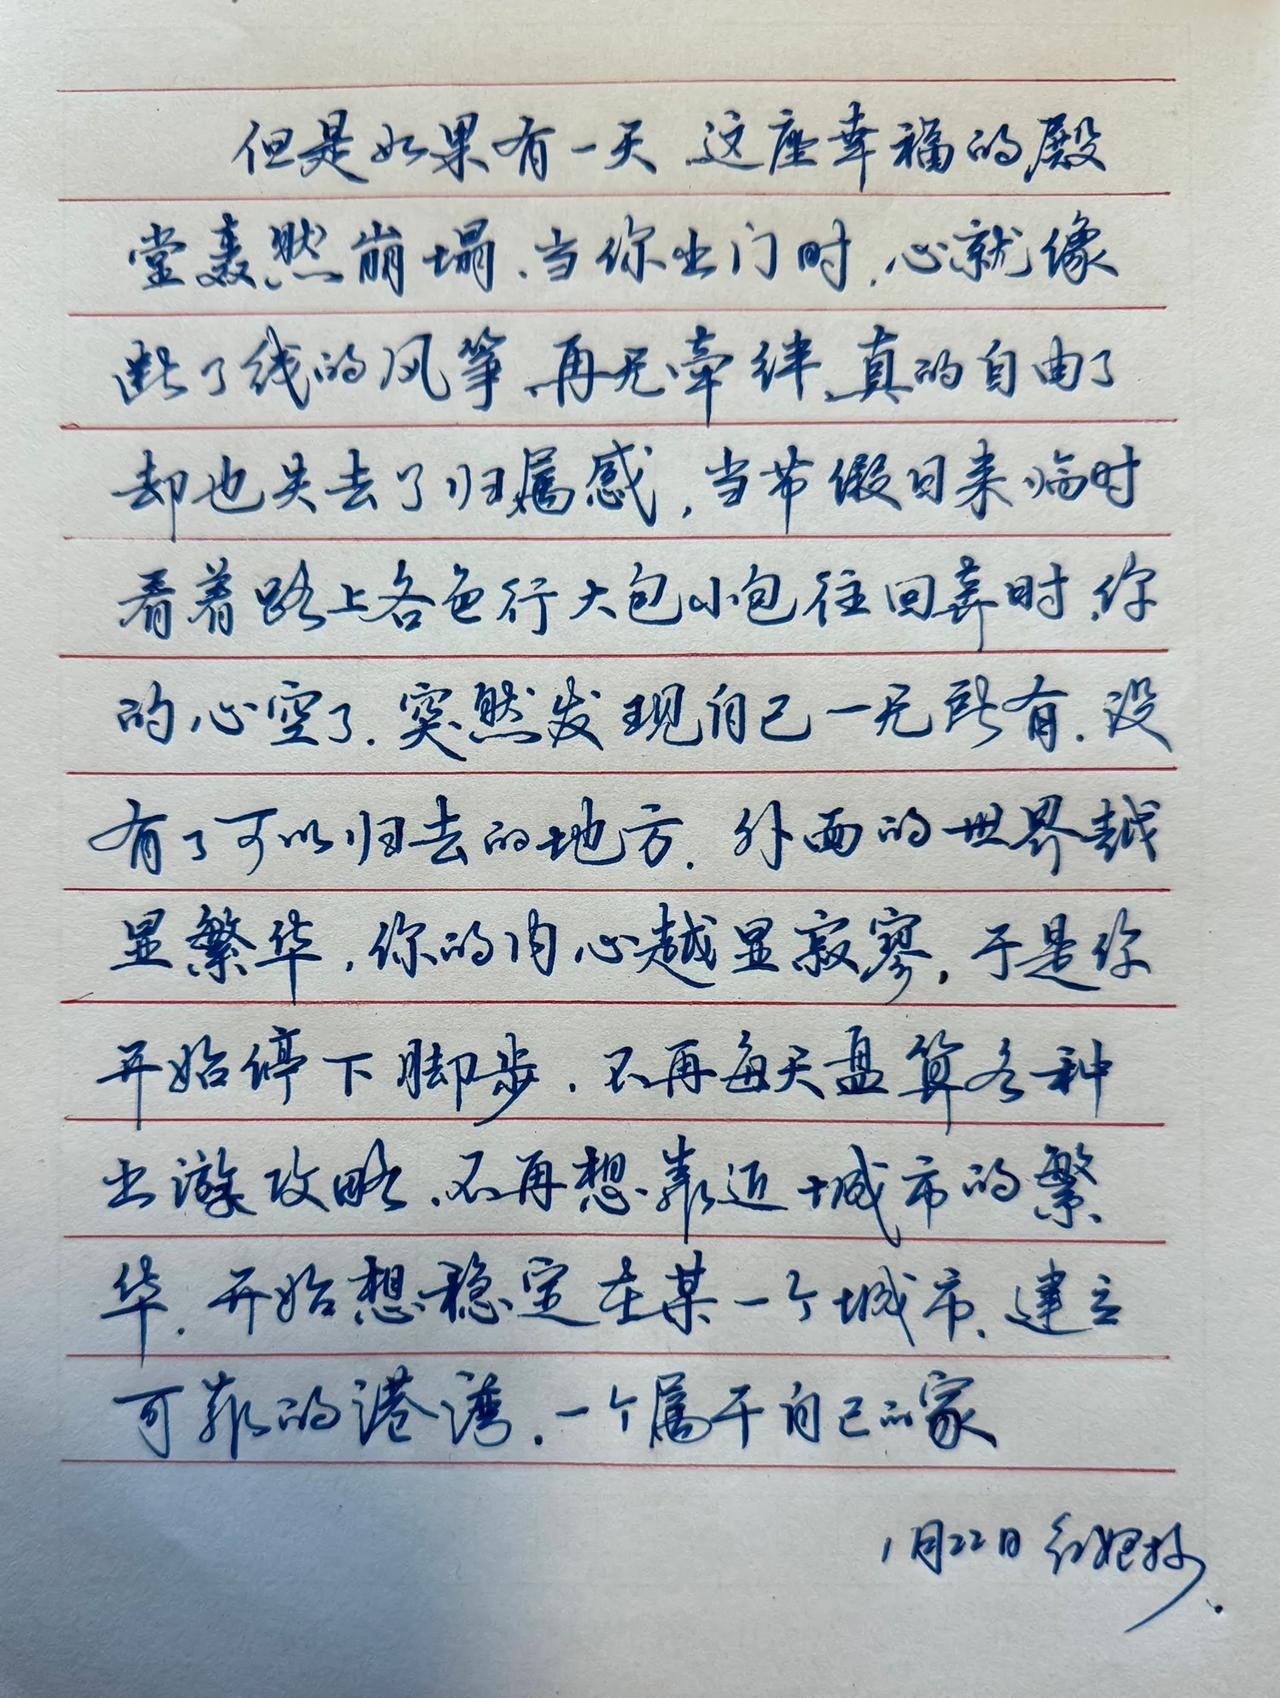 但是如果有一天、这座幸福的殿
堂轰然崩塌、当你出门时、心就像
断了线的风筝、再无牵绊、真的自由了
却也失去了归属感，当节假日来临时
看着路上各色行大包小包往回奔时、你
的心空了、突然发现自己一无所有、没
有了可以归去的地方、外面的世界越
显繁华，你的内心越显寂寥，于是你
开始停下脚步、不再每天盘算各种
出游攻略、不再想靠近城市的繁
华、开始想稳定在某一个城市、建立
可靠的港湾、一个属于自己的家
1月22日